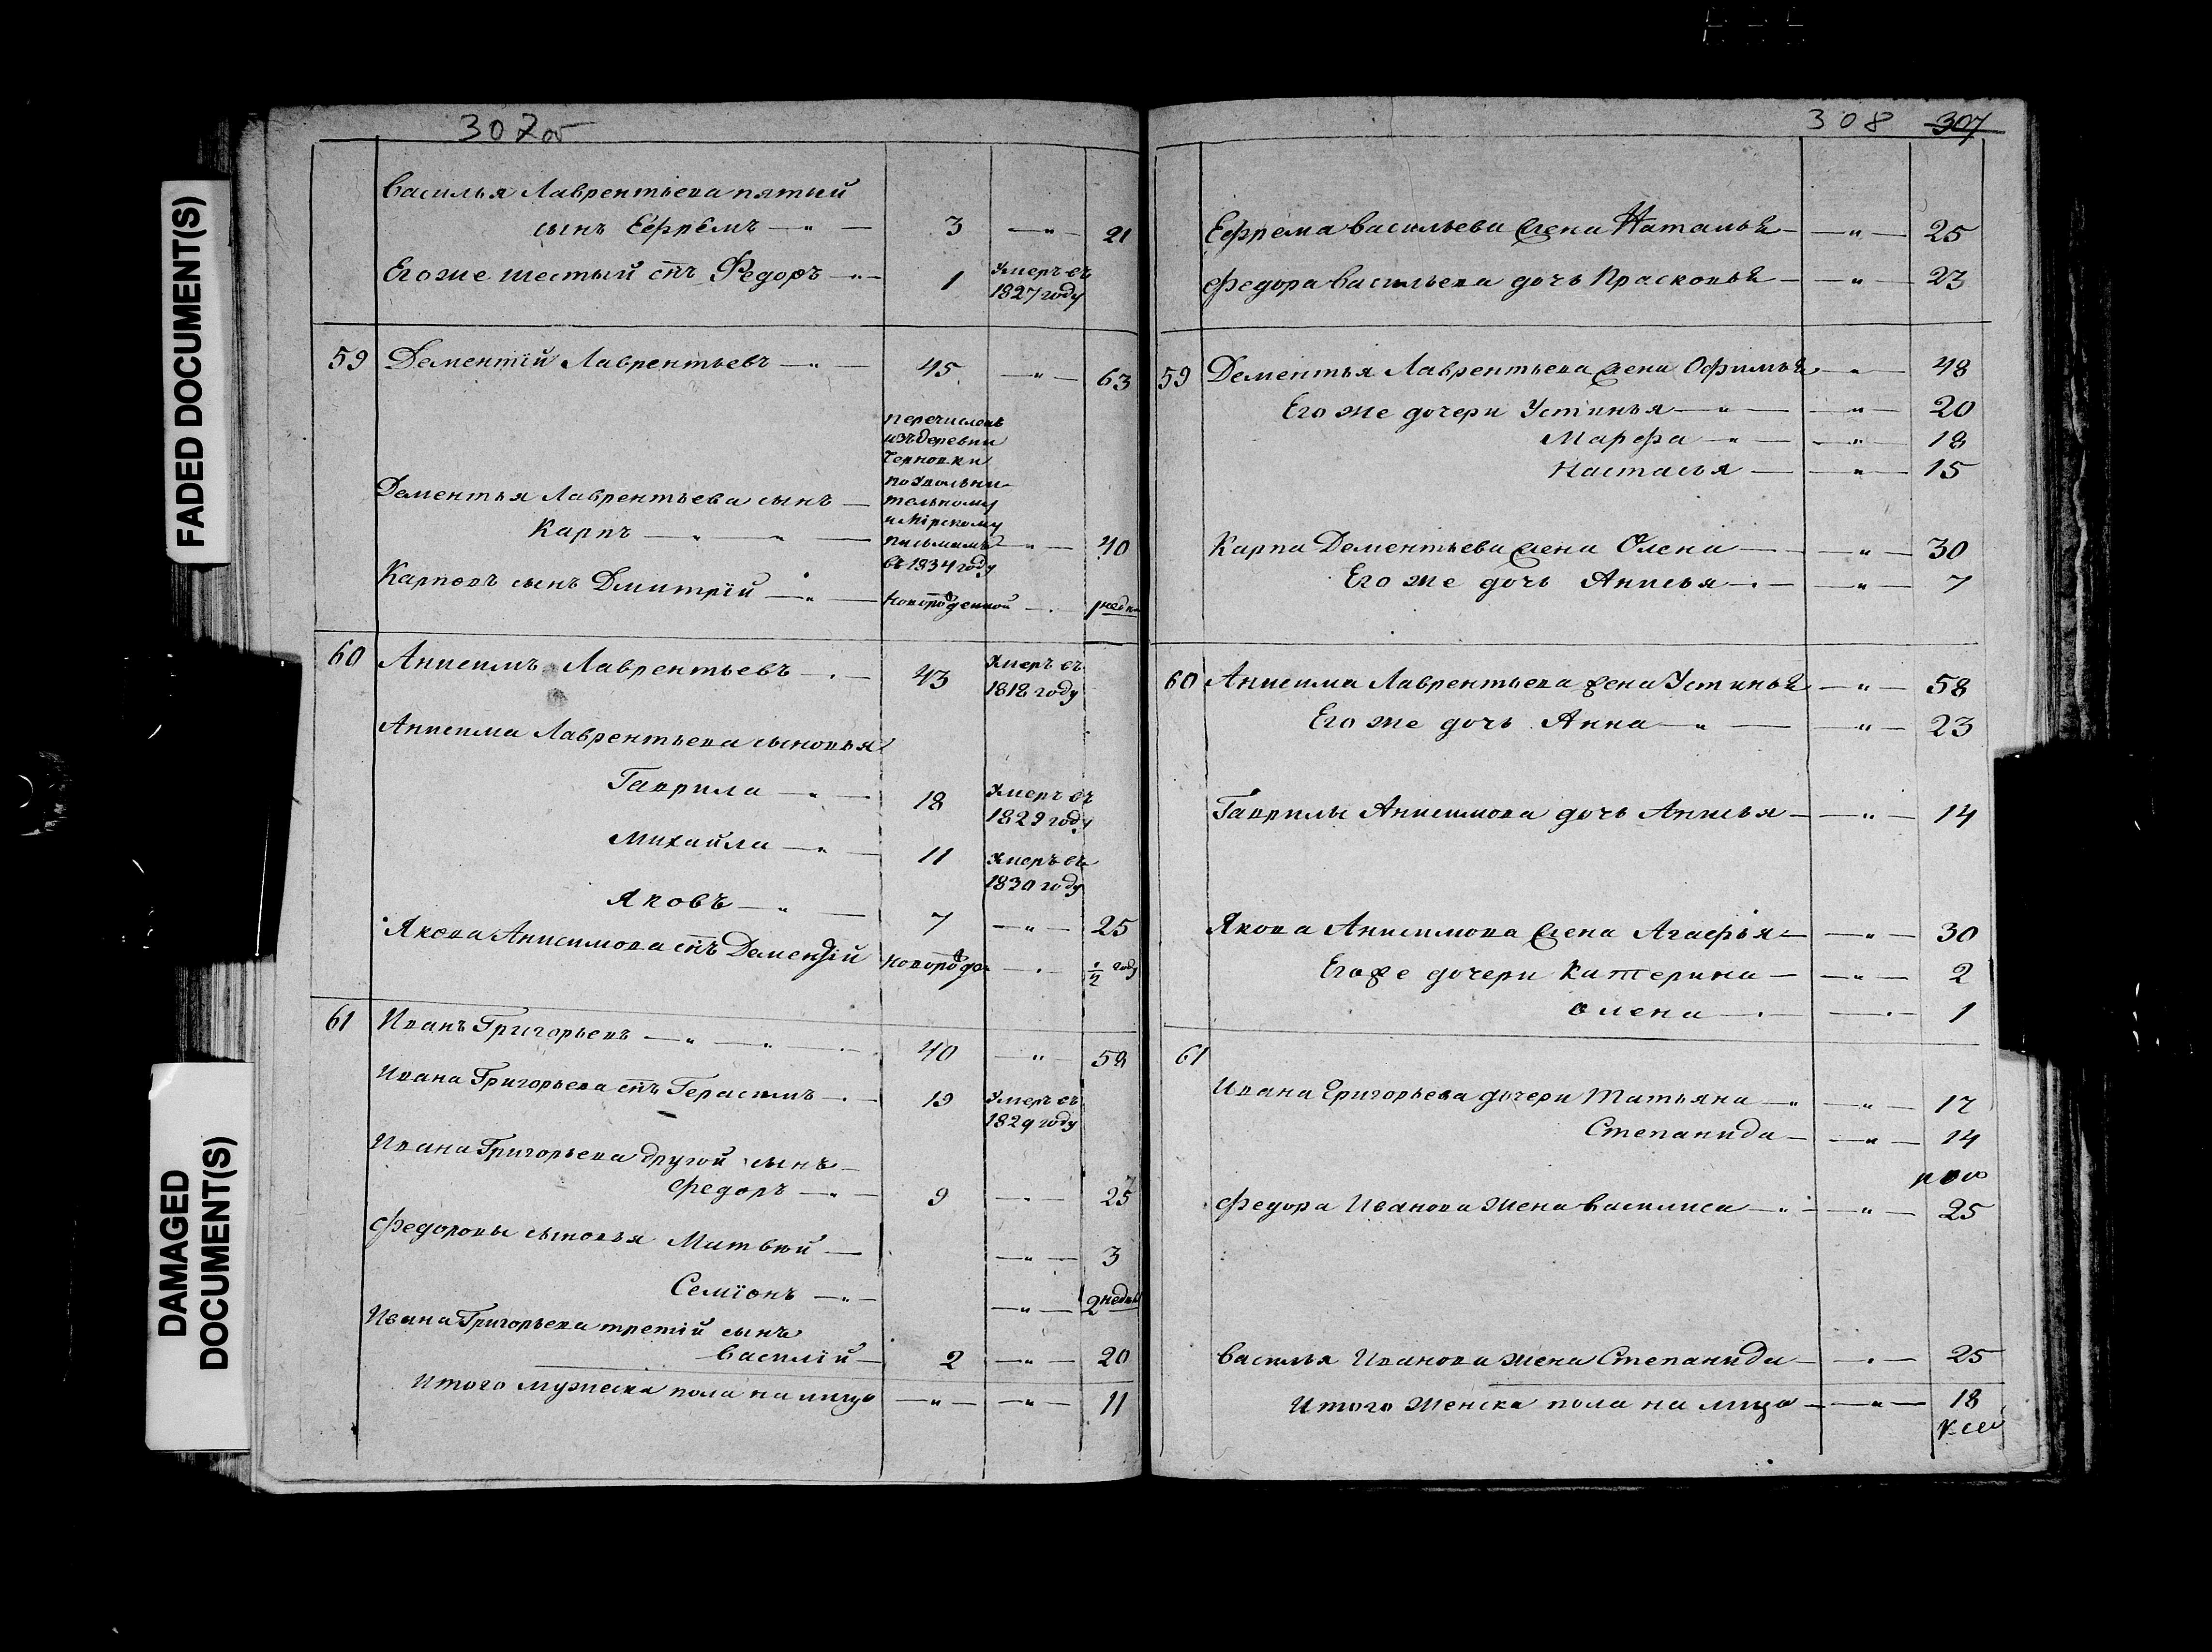 FADED DOCUMENT(S)
DAMAGED
DOCUMENT(S)
307 об
Василья Лаврентьева пятый
сынъ Ефремъ — 3 — 21
Егоже шестый снъ Федоръ — 1 умеръ въ
1827 году
59 Дементїй Лаврентьевъ — 45 — 63
перечисленъ
изъ деревни
Черновки
по увольни-
тельному
Дементья Лаврентьева сынъ —
и мірскому
Карпъ — письмамъ — 40
въ 1834 году
Карповъ сынъ Дмитрїй — новорожденной — 1 недели
60 Анисимъ Лаврентьевъ — 43 умеръ въ
1818 году
Анисима Лаврентьева сыновья
Гаврила — 18 умеръ въ
1829 году
Михайла — 11 умеръ въ
1830 году
Яковъ — 7 — 25
Якова Анисимова снъ Дементїй новорожде — 1/2 году
61 Иванъ Григорьевъ — 40 — 58
Ивана Григорьева снъ Герасимъ — 19 умеръ въ
1829 году
Ивана Григорьева другой сынъ —
Федоръ — 9 — 27
Федоровы сыновья Матвей — 3
Семїонъ — 2 недели
Ивана Григорьева третій сынъ
Василїй — 2 — 20
Итого мужеска пола на лицо — 11
308 307
Ефрема Васильева жена Наталья — 25
Федора Васильева дочь Прасковья — 23
59 Дементья Лаврентьева жена Офимья — 48
Его же дочери Устинья — 20
Марфа — 18
Настасья — 15
Карпа Дементьева жена Олена — 30
Его же дочь Анисья — 7
60 Анисима Лаврентьева жена Устинья — 58
Его же дочь Анна — 23
Гаврилы Анисимова дочь Анисья — 14
Якова Анисимова жена Агафья — 30
Егоже дочери Катерина — 2
Олена — 1
61
Ивана Григорьева дочери Татьяна — 17
Степанида — 14
Федора Иванова жена Василиса — 25
Василья Иванова жена Степанида — 25
Итого женска пола на лицо — 18